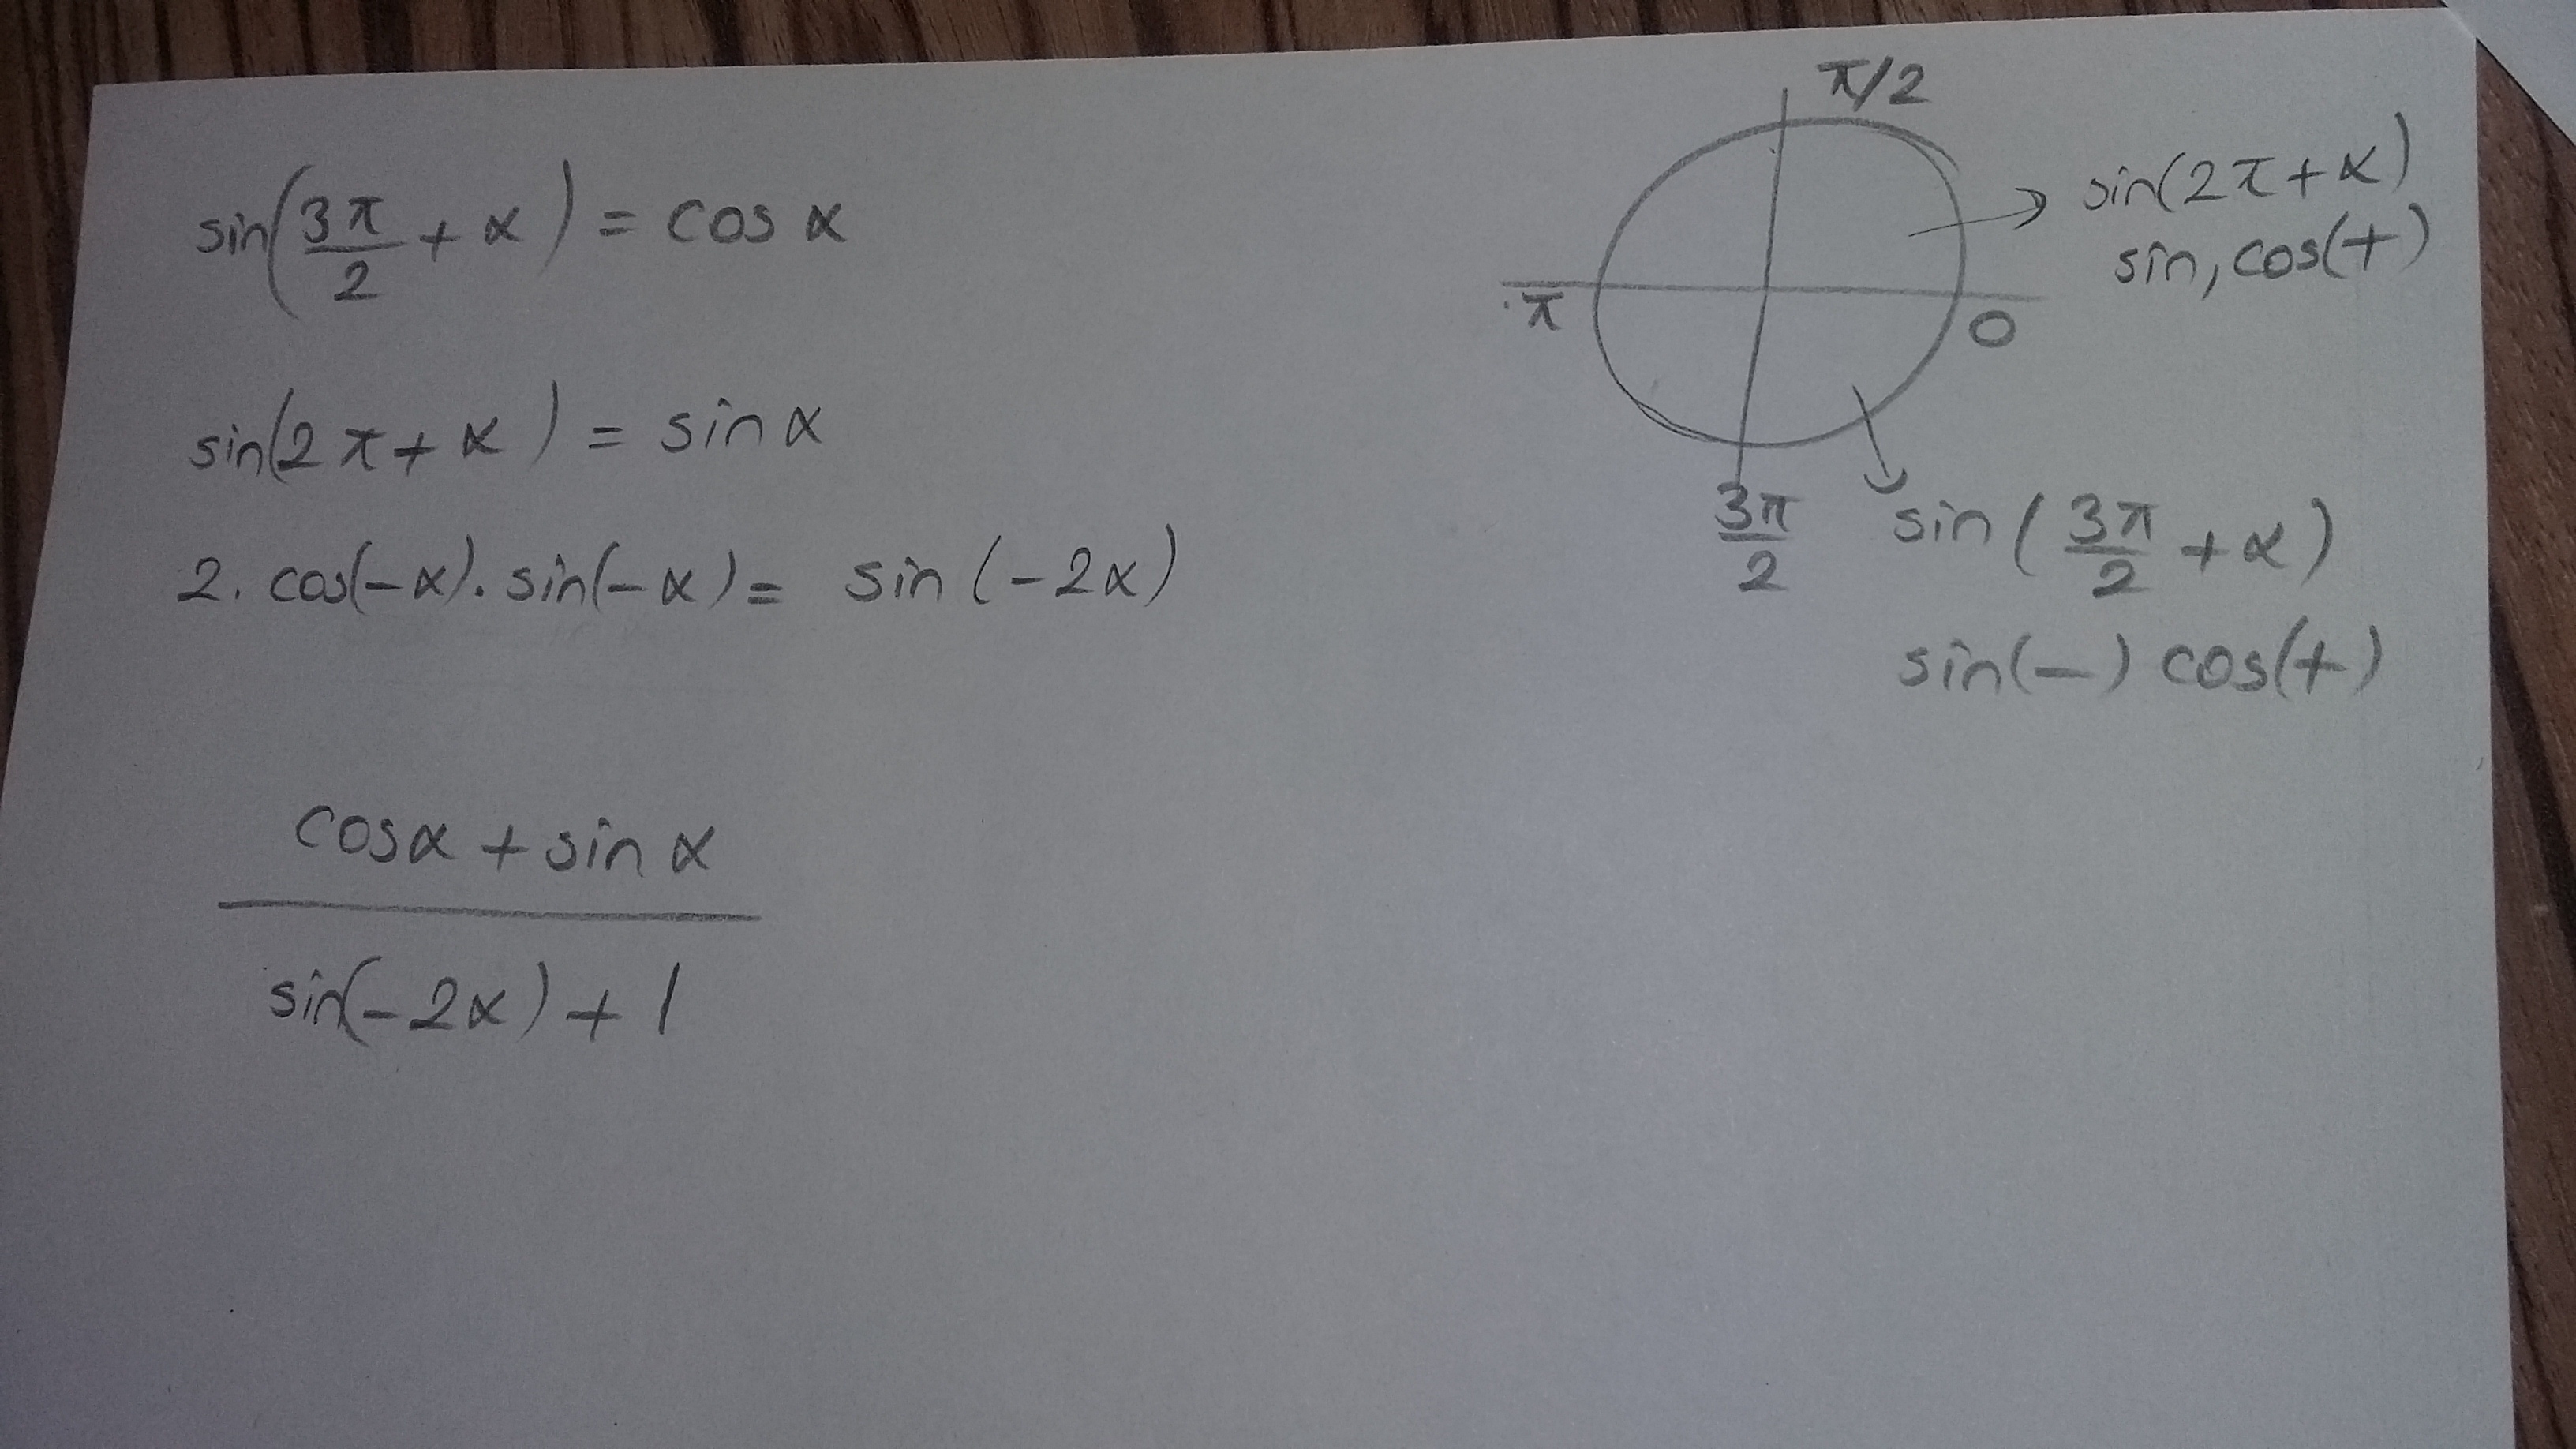 sin(3π/2 + α) = cos α
sin(2π + α) = sin α
2. cos(-α). sin(-α) = sin (-2α)
cosα + sin α
sin(-2α) + 1
π/2
π
0
3π/2
sin(2π + α)
sin, cos(+)
sin (3π/2 + α)
sin(-) cos(+)